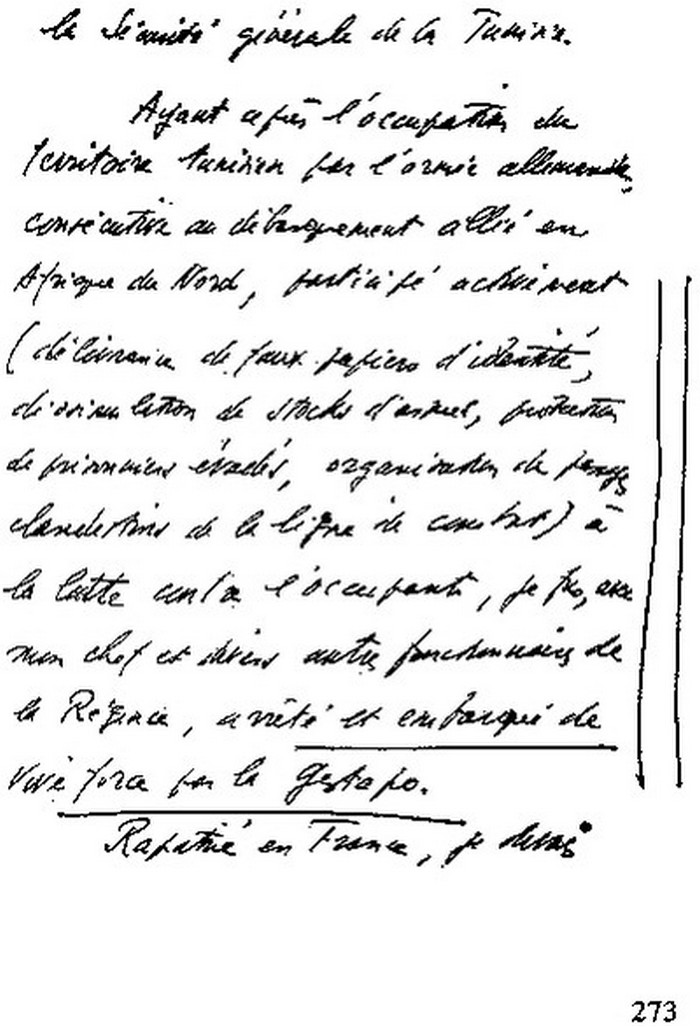 la Sécurité générale de la Tunisie.
Ayant après l'occupation du
territoire tunisien par l'armée allemande,
consécutive au débarquement allié en
Afrique du Nord, participé activement
(délivrance de faux papiers d'identité,
dissimulation de stocks d'armes, protection
de prisonniers évadés, organisation de passages
clandestins de la ligne de combat) à
la lutte contre l'occupant, je fus, avec
mon chef et divers autres fonctionnaires de
la Régence, arrêté et embarqué de
vive force par la Gestapo.
Rapatrié en France, je devais
273